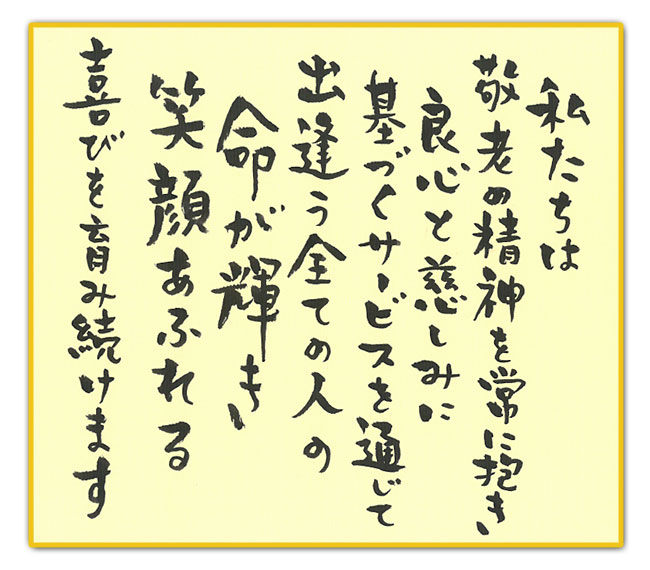 私たちは
敬老の精神を常に抱き
良心と慈しみに
基づくサービスを通じて
出逢う全ての人の
命が輝き
笑顔あふれる
喜びを育み続けます